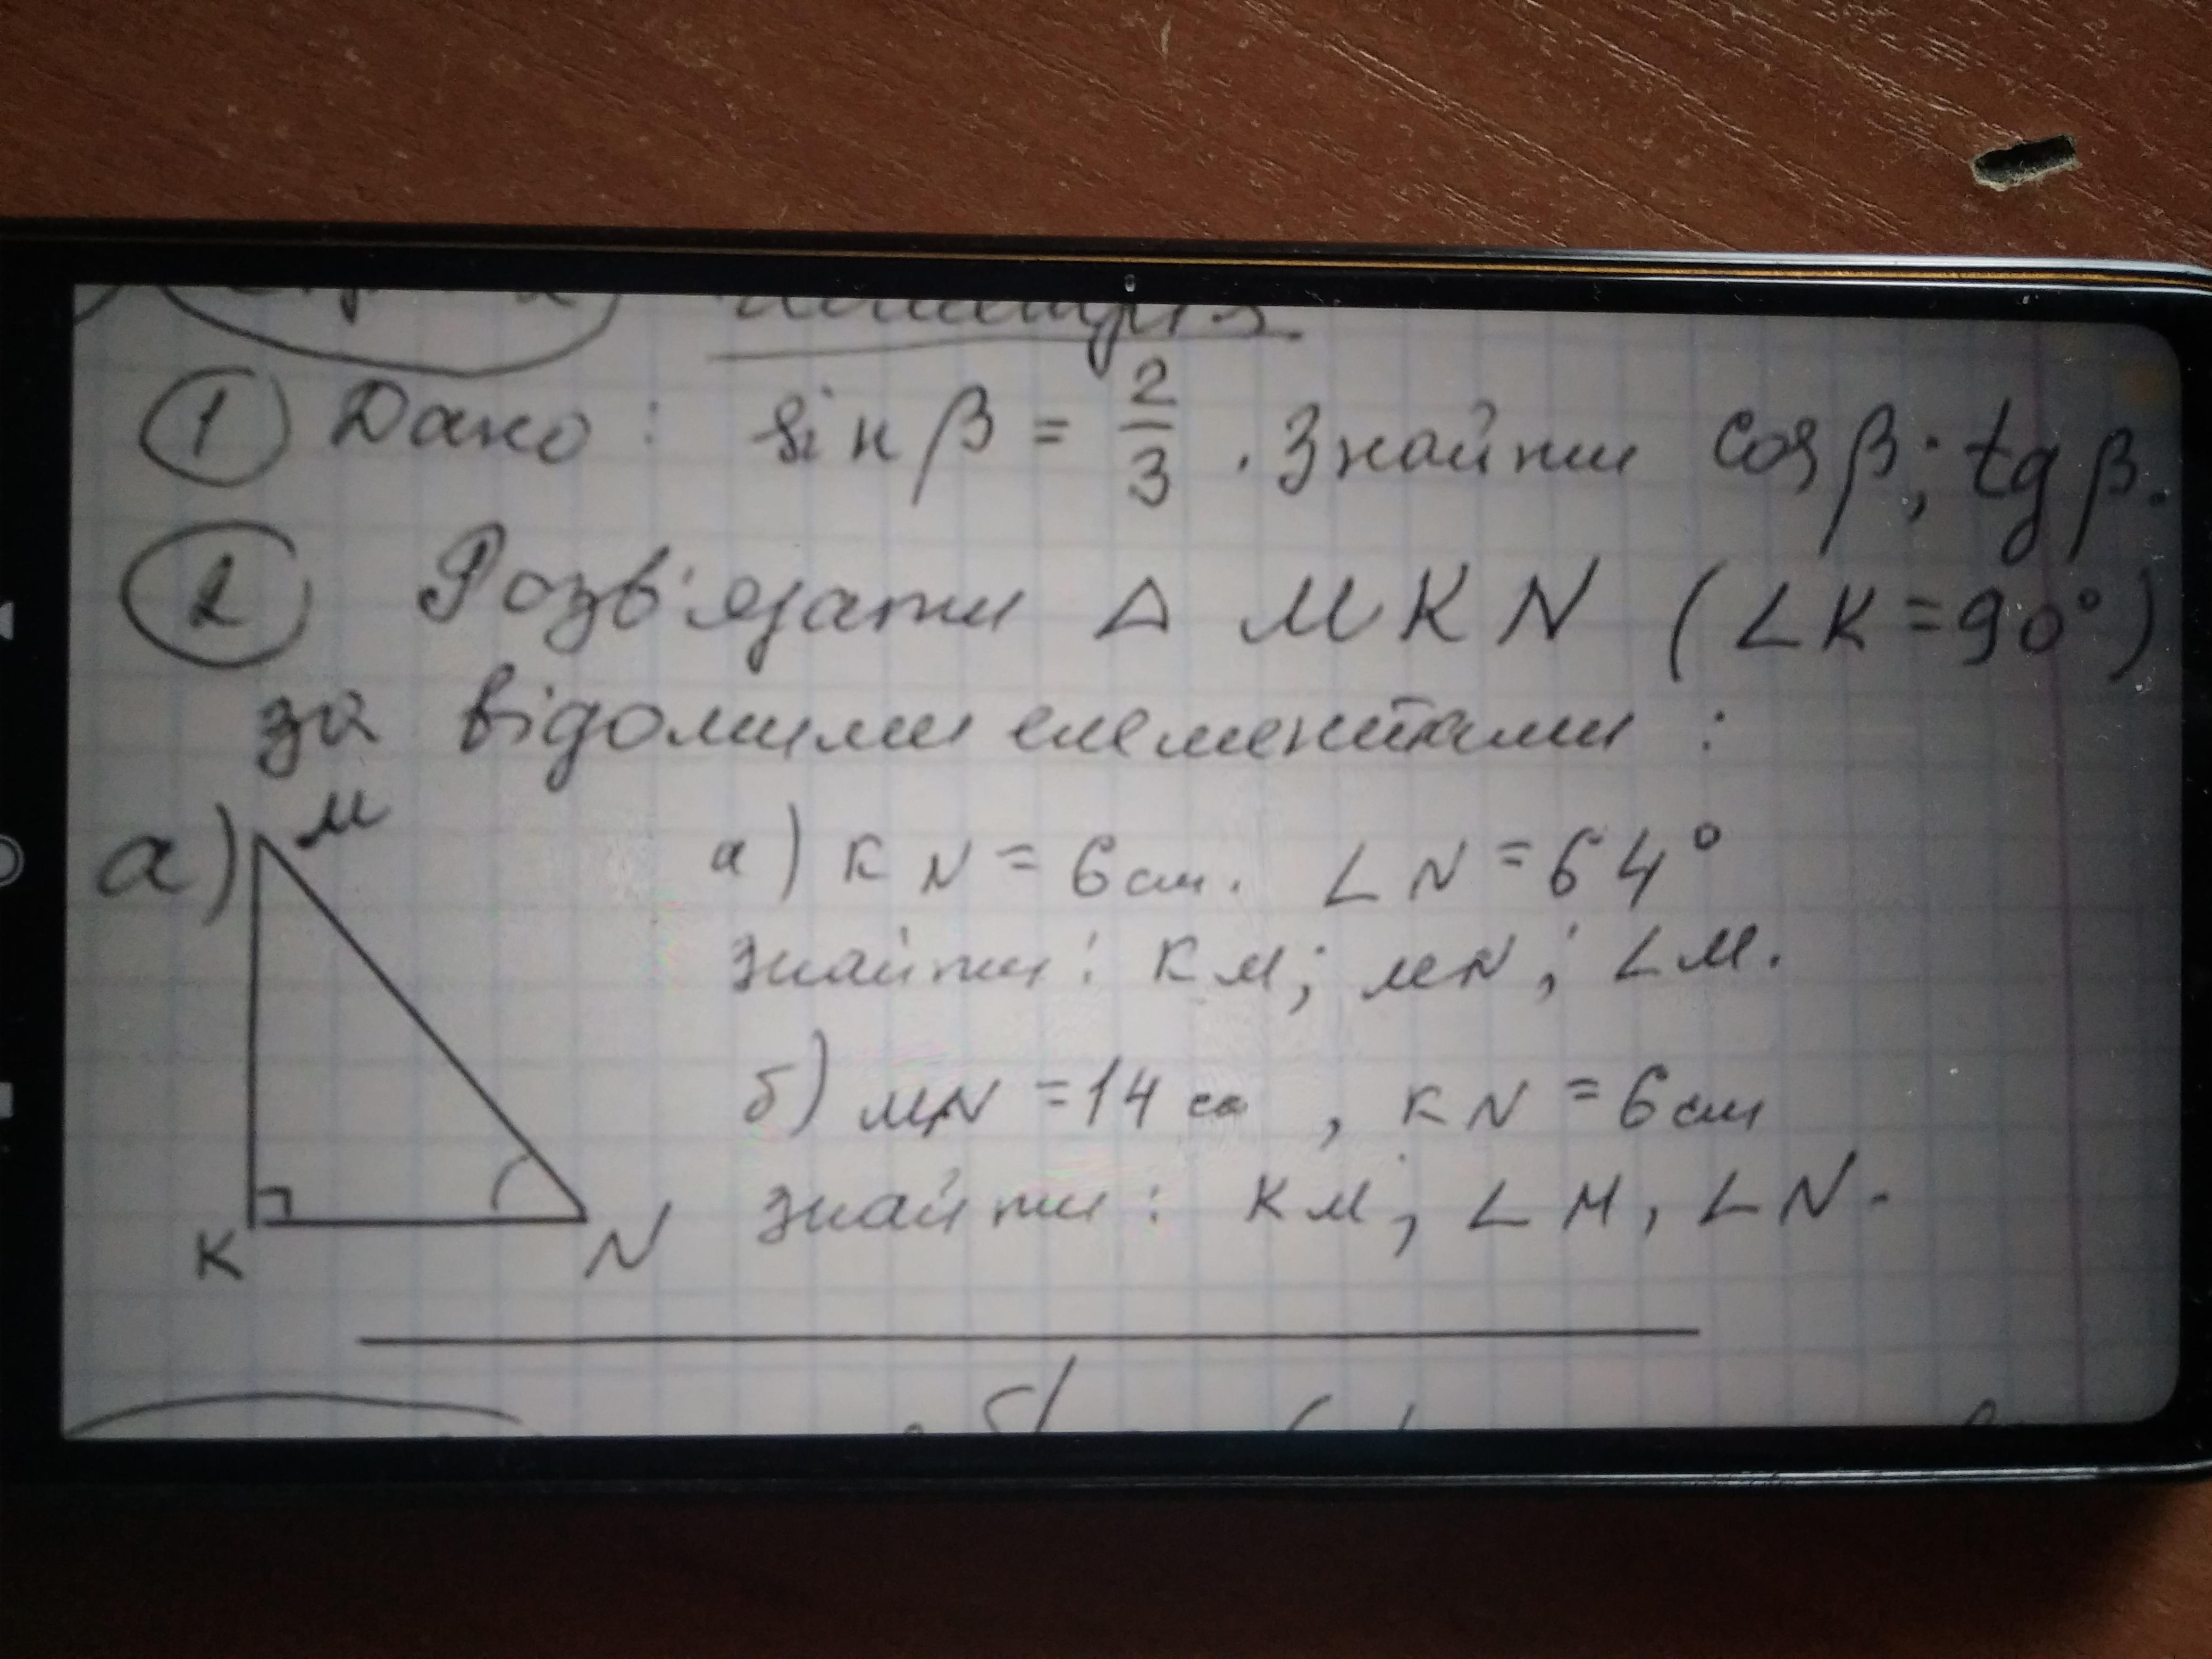 ① Дано: sin β = 2/3. Знайти cos β; tg β.
② Розв'язати △ MKN (∠K = 90°)
за відомими елементами:
а) M
K N
а) KN = 6 см. ∠N = 64°
знайти: KM; MN; ∠M.
б) MN = 14 см, KN = 6 см
знайти: KM, ∠M, ∠N.